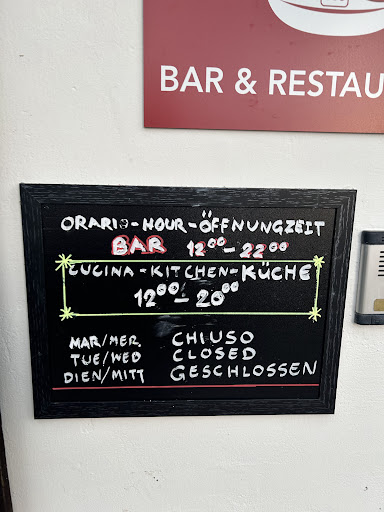 BAR & RESTAU
ORARIO-HOUR-ÖFFNUNGZEIT
BAR 12⁰⁰-22⁰⁰
CUCINA-KITCHEN-KÜCHE
12⁰⁰-20⁰⁰
MAR/MER. CHIUSO
TUE/WED CLOSED
DIEN/MITT GESCHLOSSEN